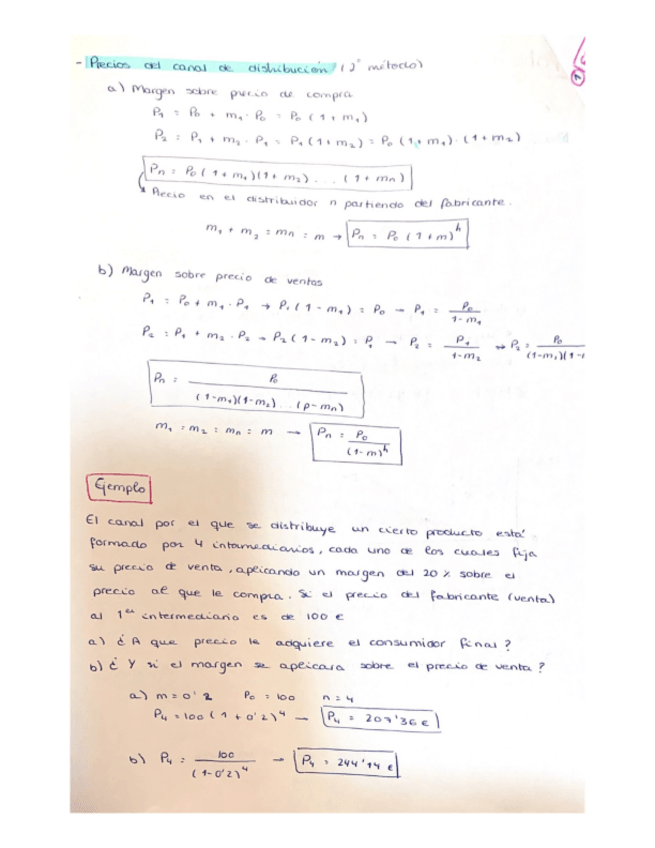 - Precios del canal de distribución (2º método)
a) Margen sobre precio de compra
P₁ = P₀ + m₁ · P₀ = P₀ (1 + m₁)
P₂ = P₁ + m₂ · P₁ = P₁ (1 + m₂) = P₀ (1 + m₁) · (1 + m₂)
Pn = P₀ (1 + m₁)(1 + m₂) ... (1 + mn)
Precio en el distribuidor n partiendo del fabricante.
m₁ + m₂ = mn = m → Pn = P₀ (1 + m)ⁿ
b) Margen sobre precio de ventas
P₁ = P₀ + m₁ · P₁ → P₁ (1 - m₁) = P₀ → P₁ = P₀ / (1 - m₁)
P₂ = P₁ + m₂ · P₂ → P₂ (1 - m₂) = P₁ → P₂ = P₁ / (1 - m₂) → P₂ = P₀ / (1-m₁)(1-
Pn = P₀ / (1-m₁)(1-m₂)...(p-mn)
m₁ = m₂ = mn = m → Pn = P₀ / (1-m)ⁿ
Ejemplo
El canal por el que se distribuye un cierto producto está
formado por 4 intermediarios, cada uno de los cuales fija
su precio de venta, aplicando un margen del 20 % sobre el
precio al que le compra. Si el precio del fabricante (venta)
al 1er intermediario es de 100 €
a) ¿A que precio le adquiere el consumidor final?
b) ¿Y si el margen se aplicara sobre el precio de venta?
a) m = 0'2 P₀ = 100 n = 4
P₄ = 100 (1 + 0'2)⁴ → P₄ = 207'36 €
b) P₄ = 100 / (1-0'2)⁴ → P₄ = 244'14 €